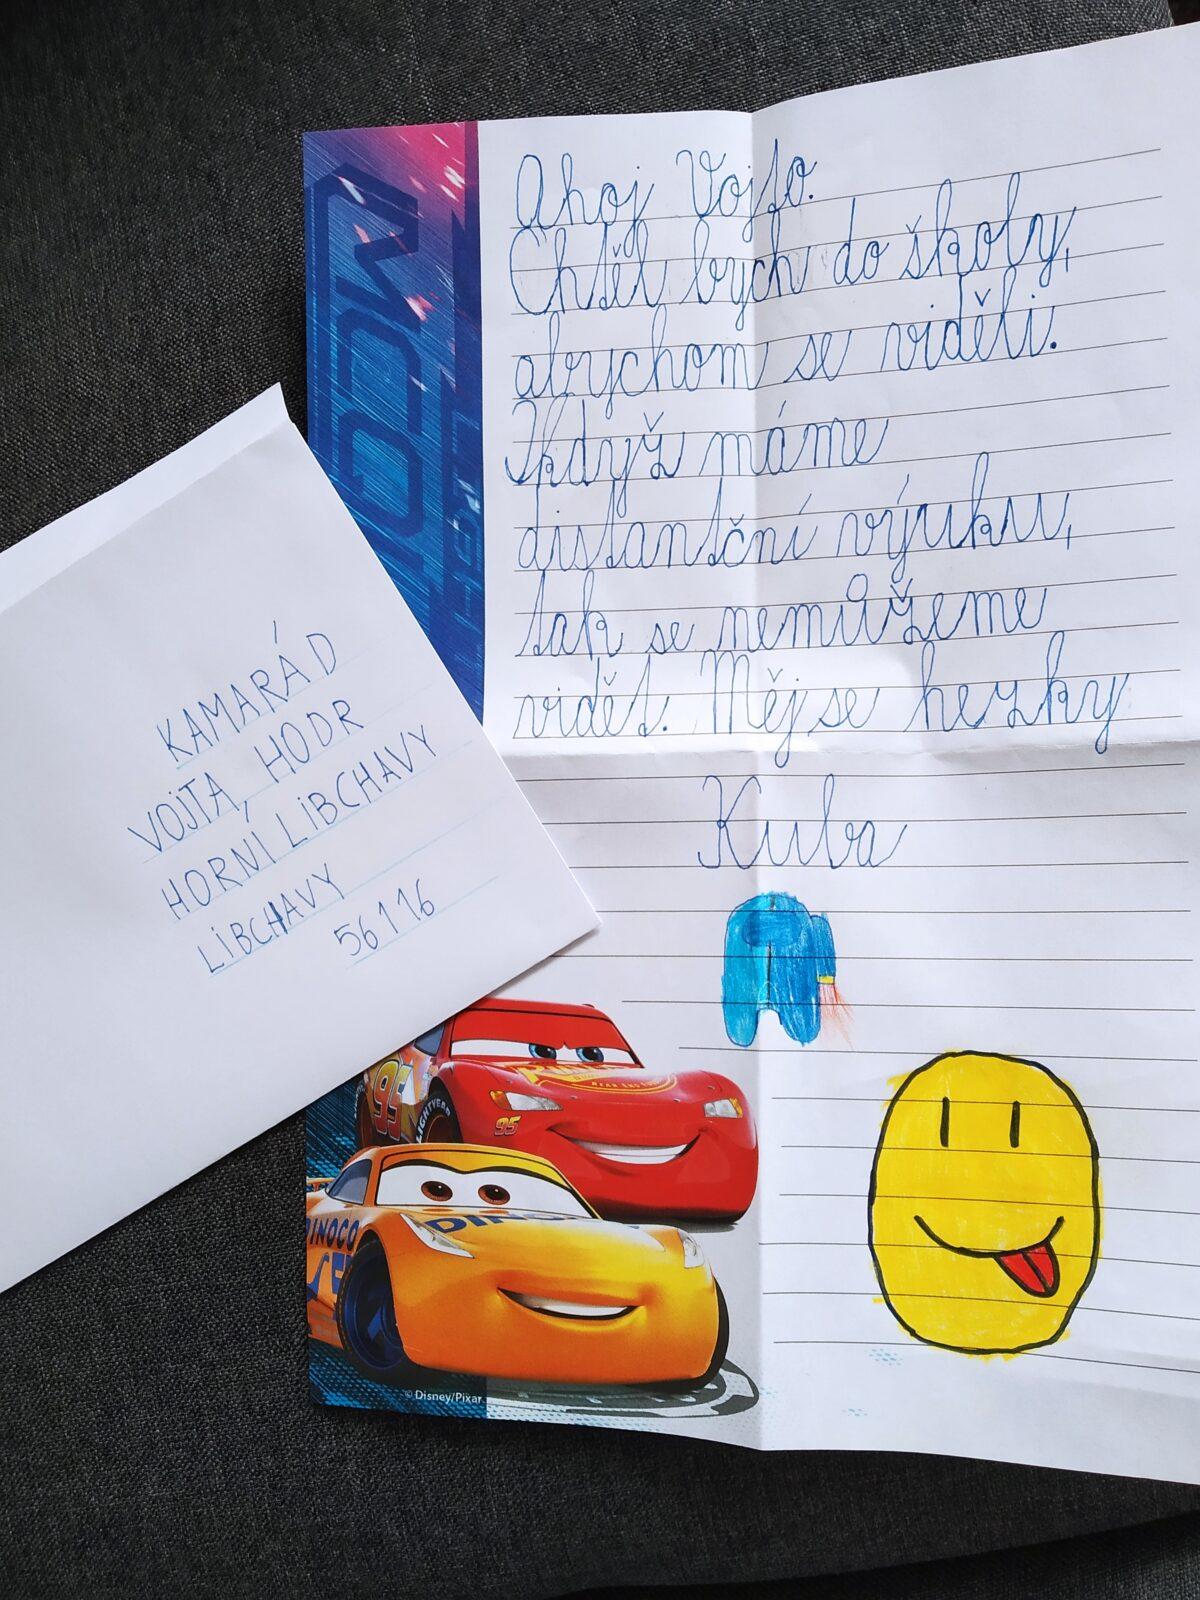 Ahoj Vojto.
Chtěl bych do školy,
abychom se viděli.
Když máme
distanční výuku,
tak se nemůžeme
vidět. Měj se hezky
Kuba
KAMARÁD
VOJTA, HODR
HORNÍ LIBCHAVY
LIBCHAVY
56116
95
95
LIGHTYEAR
DINOCO
DINOCO
© Disney/Pixar